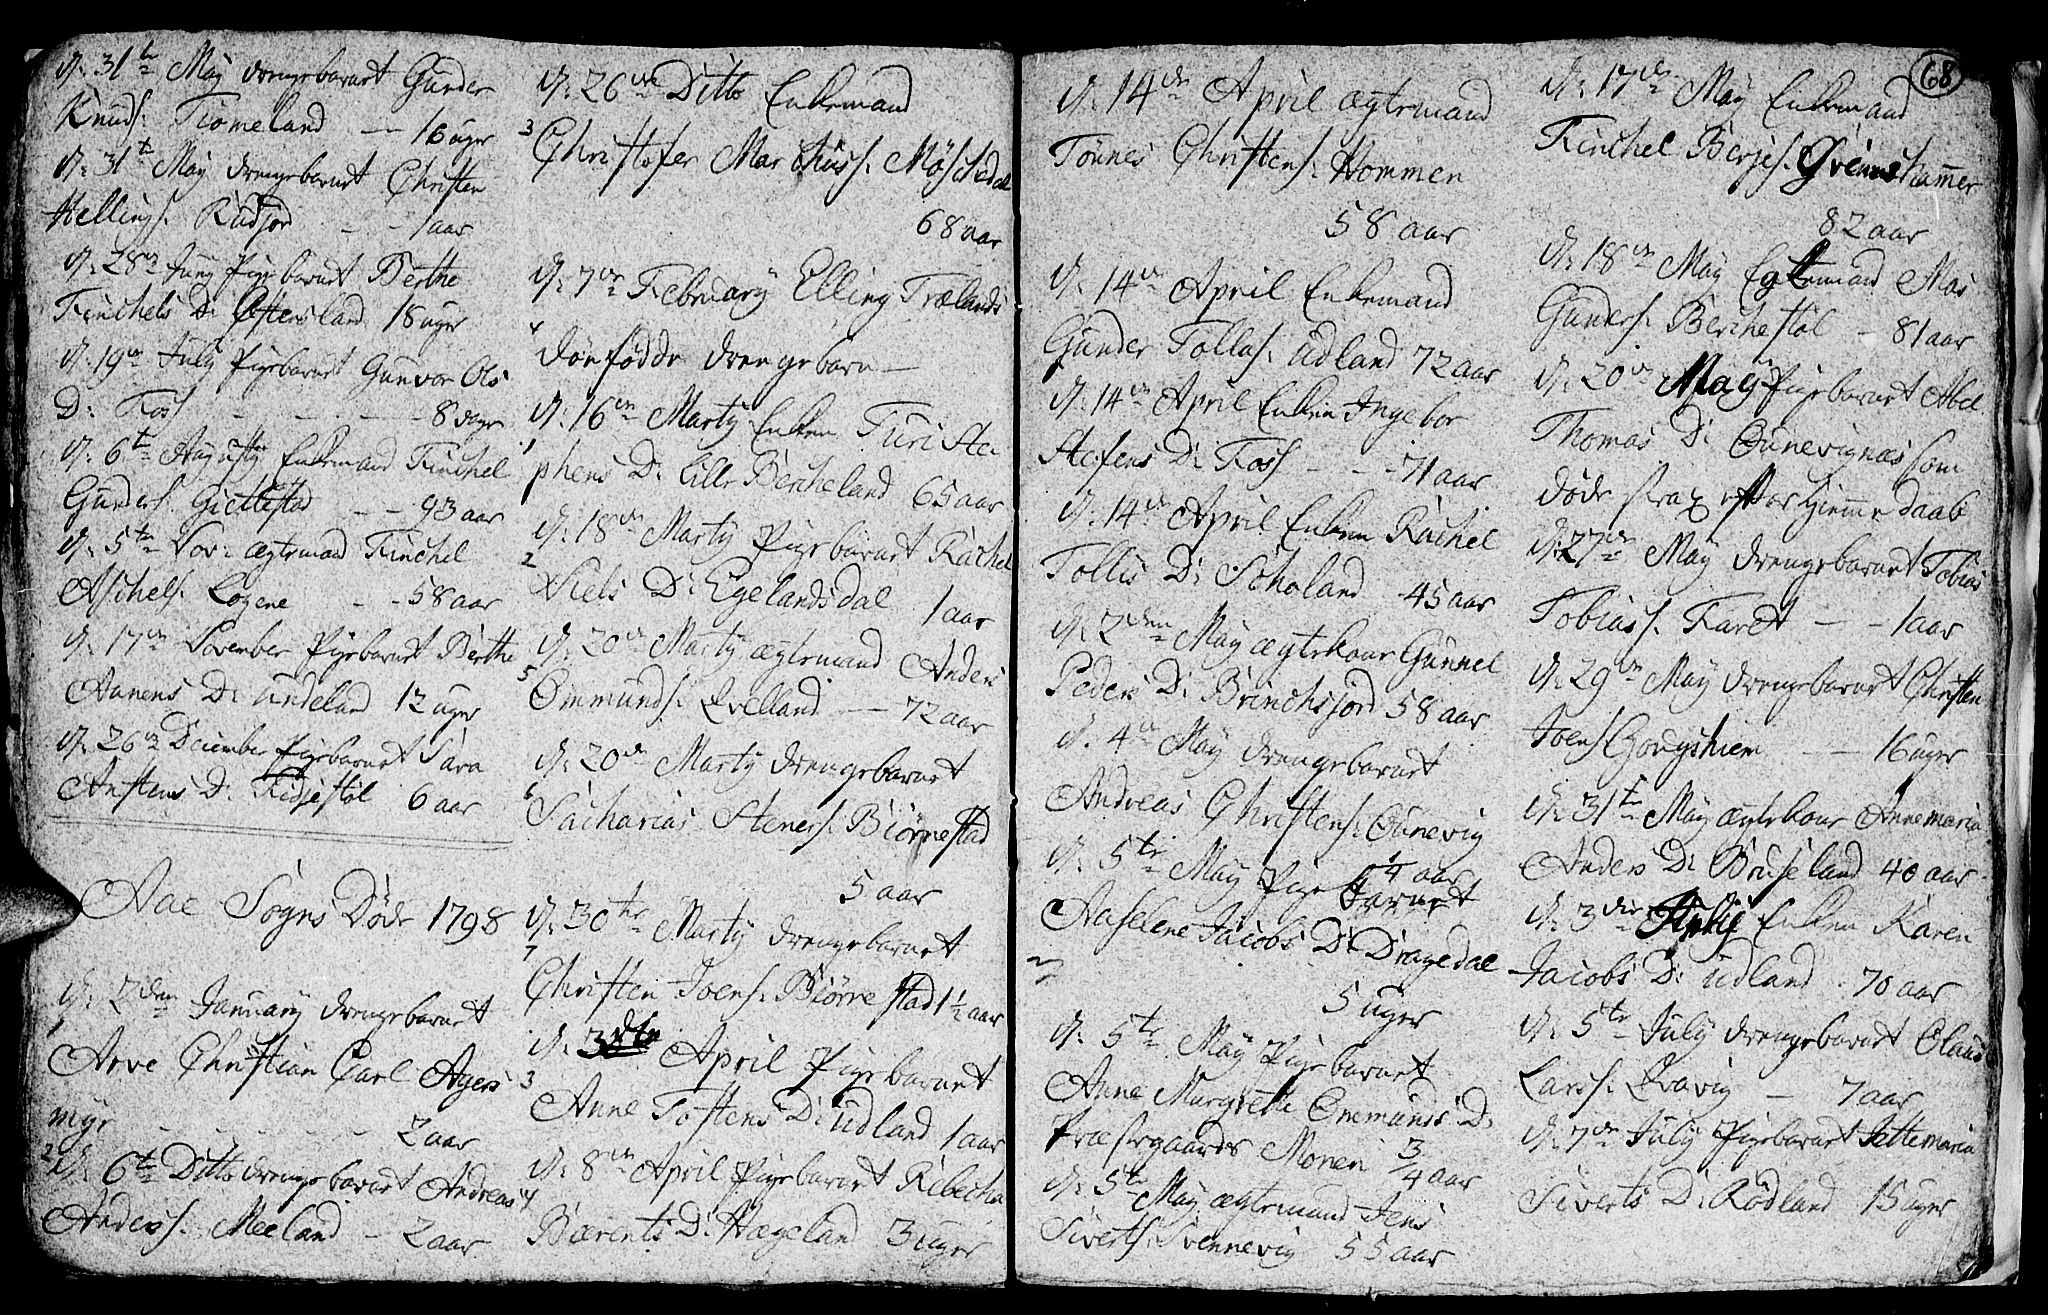 d: 31te May drengebarnet Gunder
Knuds: Tiomeland -- 16 uger
d: 31te May drengebarnet Christen
Hellings: Rudjor - - 1 aar
d: 28de Juny Pigebarnet Berthe
Tinchels D: Ostensland 18 uger
d: 19de July Pigebarnet Gunvor Ols
D: Foss - - - - - 8 dage
d: 6te Augusty Enkemand Tinchel
Gunders: Giettestad - - 93 aar
d: 5te Nov: ægtemand Tinchel
Aschels: Logene - - 58 aar
d: 17de November Pigebarnet Berthe
Aanens D: Undeland 12 uger
d: 26de December Pigebarnet Sara
Anstens D: Kidjestøl 6 aar
Aae Sogns Døde 1798
d: 2den January drengebarnet
1
Arve Christian Carl Agers
myr - - - - - 2 aar
2 d: 6te Ditto drengebarnet Andreas
Anders: Meeland - 2 aar
d: 26de Ditto Enkemand
3 Christofer Marchuss: Møschedal
68 aar
d: 7de February Elling Trælands
4
dønfødde drengebarn -
d: 16de Marty Enken Turi Ste-
1
phens D: lille Bercheland 65 aar
d: 18de Marty Pigebarnet Rachel
2
Niels D: Egelandsdal 1 aar
d: 20de Marty ægtemand Anders
5
Ommunds: Qvelland -- 72 aar
d: 20de Marty drengebarnet
6
Sacharias Steners: Biørnestad
5 aar
d: 30te Marty drengebarnet
7
Christen Joens: Biørnestad 1 1/2 aar
d: 3die April Pigebarnet
3
Anne Tostens D: Udland 1 aar
d: 8de April Pigebarnet Ribecha
4
Bærents D: Hægeland 3 uger
68
d: 14de April ægtemand
Tønnes Christens: Hommen
58 aar
d: 14de April Enkemand
Gunder Tollas: Udland 72 aar
d: 14de April Enken Ingebor
Stefens D: Foss - - - 71 aar
d: 14de April Enken Rachel
Tollis D: Soholand 45 aar
d: 2den May ægtekone Gunnel
Peders D: Brinchsjord 58 aar
d: 4de May drengebarnet
Andreas Christens: Ounevig
1/4 aar
d: 5te May Pigebarnet
Aaselene Jacobs D: Dragedal
5 uger
d: 5te May Pigebarnet
Anne Margrethe Ommunds D:
Præstegaards Monen 3/4 aar
d: 5te May ægtemand Jens
Siverts: Svennevig 55 aar
d: 17de May Enkemand
Tinchel Berjes: Øvinshammer
82 aar
d: 18de May Enkemand Mos
Gunders: Berchestøl - 81 aar
d: 20de May Pigebarnet Abel
Thomas D: Ounevignæs som
døde strax efter Hjemme daab
d: 27de May drengebarnet Tobias
Tobias: Faret - - 1 aar
d: 29de May drengebarnet Christen
Joens: Hougshiem -- 16 uger
d: 31te May ægtekone Annemaria
Anders D: Bruseland 40 aar
d: 3die July Enken Karen
Jacobs D: Udland - 70 aar
d: 5te July drengebarnet Olaus
Larss: Qvavig - 7 aar
d: 7de July Pigebarnet Jættemaria
Siverts D: Rødland 15 uger